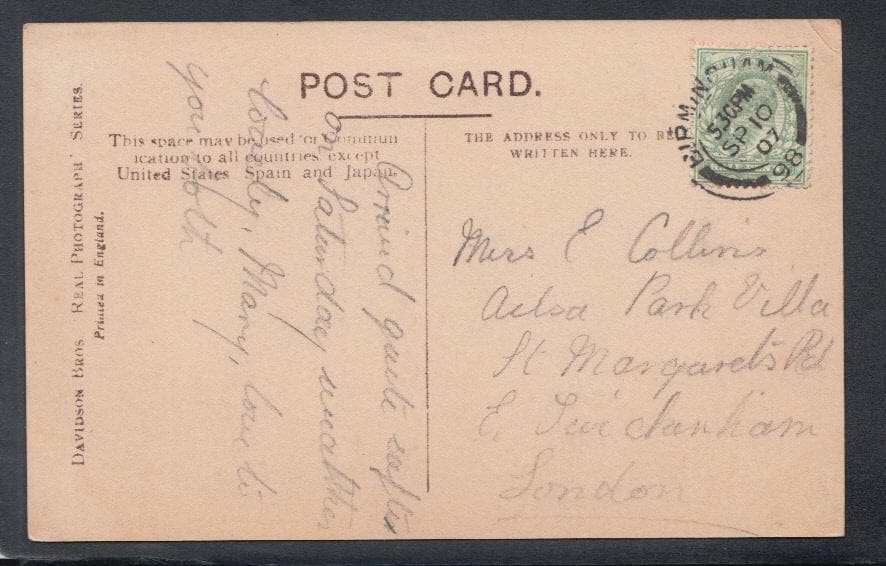 POST CARD.
This space may be used for commun
ication to all countries except
United States Spain and Japan.
THE ADDRESS ONLY TO BE
WRITTEN HERE.
BIRMINGHAM
5.30PM
SP 10
07
98
DAVIDSON BROS REAL PHOTOGRAPH SERIES.
Printed in England.
Arrived quite safter
on Saturday weather
lovely, Mary, love to
you both
Miss E Collins
Ailsa Park Villa
St Margarets Rd
E. Twickenham
London